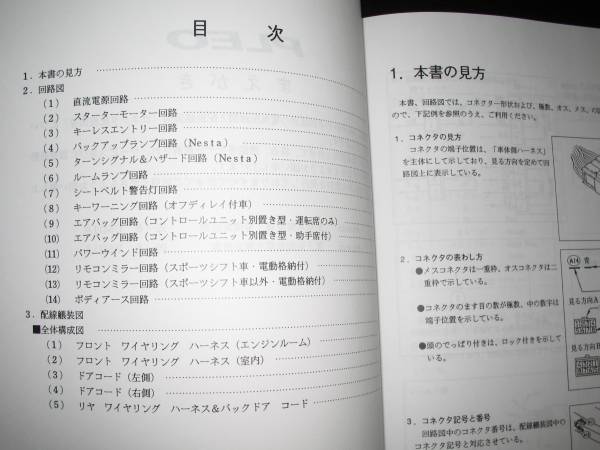 目 次
1．本書の見方
2．回路図
(1) 直流電源回路
(2) スターターモーター回路
(3) キーレスエントリー回路
(4) バックアップランプ回路(Nesta)
(5) ターンシグナル&ハザード回路(Nesta)
(6) ルームランプ回路
(7) シートベルト警告灯回路
(8) キーワーニング回路(オフディレイ付車)
(9) エアバッグ回路(コントロールユニット別置き型・運転席のみ)
(10) エアバッグ回路(コントロールユニット別置き型・助手席付)
(11) パワーウインド回路
(12) リモコンミラー回路(スポーツシフト車・電動格納付)
(13) リモコンミラー回路(スポーツシフト車以外・電動格納付)
(14) ボディアース回路
3．配線艤装図
■全体構成図
(1) フロント ワイヤリング ハーネス(エンジンルーム)
(2) フロント ワイヤリング ハーネス(室内)
(3) ドアコード(左側)
(4) ドアコード(右側)
(5) リヤ ワイヤリング ハーネス&バックドア コード
1．本書の見方
本書、回路図では、コネクター形状および、極数、オス、メス、の
ので、下記例を参照のうえ、ご利用ください。
1．コネクタの見方
コネクタの端子位置は、「車体側ハーネス」
を主体にして示しており、見る方向を定めて回
路図上に表示している。
2．コネクタの表わし方
●メスコネクタは一重枠、オスコネクタは二
重枠で示している。
●コネクタのます目の数が極数、中の数字は
端子位置を示している。
●頭のでっぱり付きは、ロック付きを示して
いる。
A14 青
見る方向A
見る方向B
3．コネクタ記号と番号
回路図中のコネクタ番号は、配線艤装図中の
コネクタ記号と対応させている。